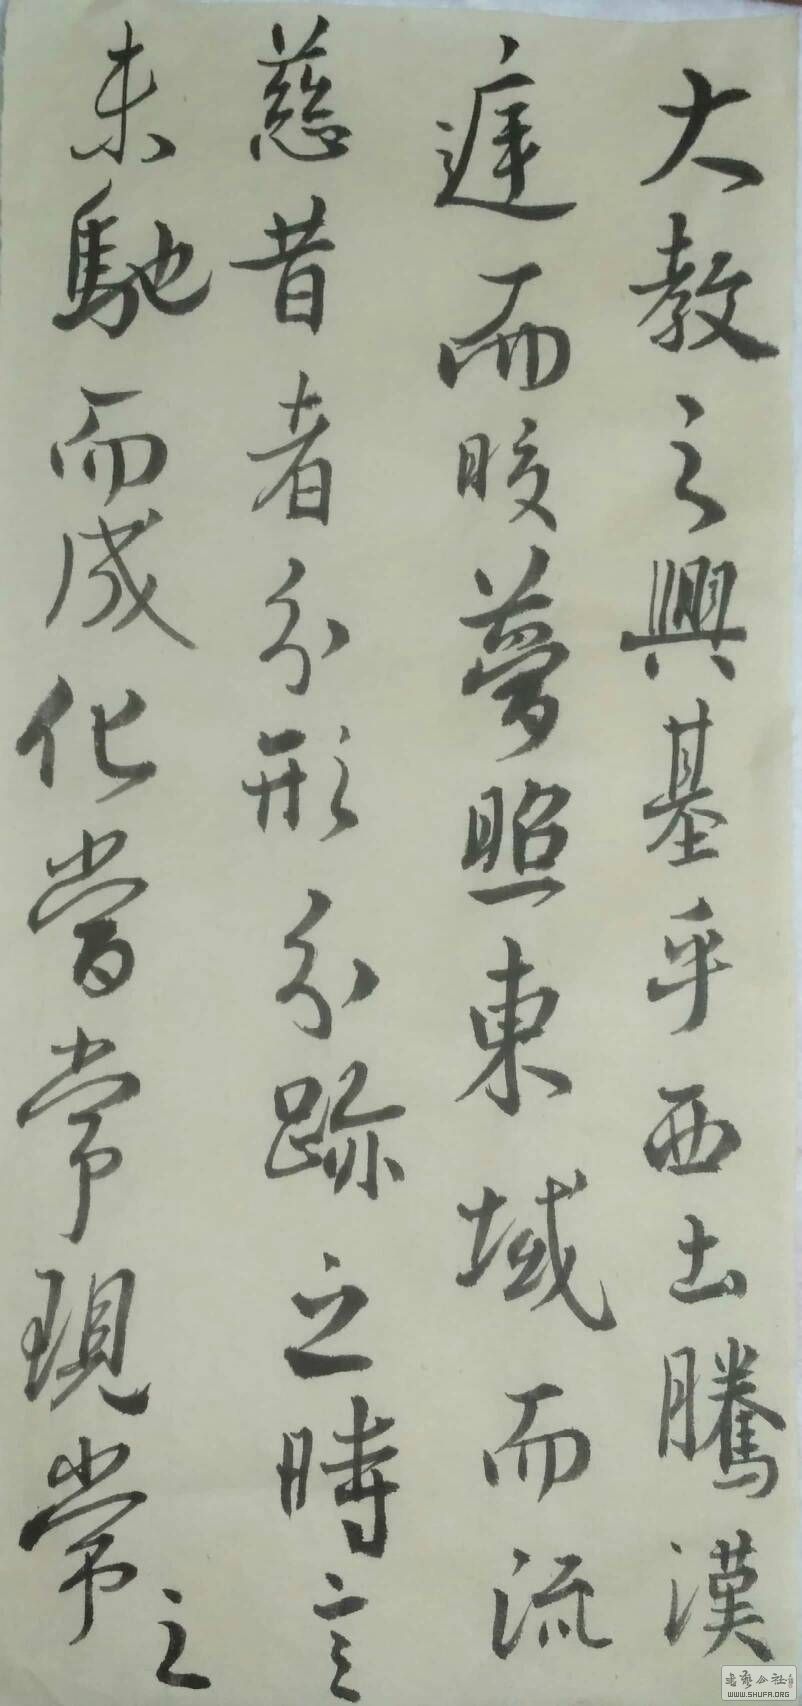 大教之興基乎西土騰漢
庭而皎夢照東域而流
慈昔者分形分跡之時言
未馳而成化當常現常
之
書藝公社
WWW.SHUFA.ORG